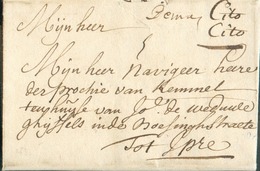 Mijn heer
Cito
Cito
Mijn heer Navigeer heere
der prochie van Kemmel
van Jo.r de weduwe
ghijssels inde Boesinghstraete
Tot Ypre